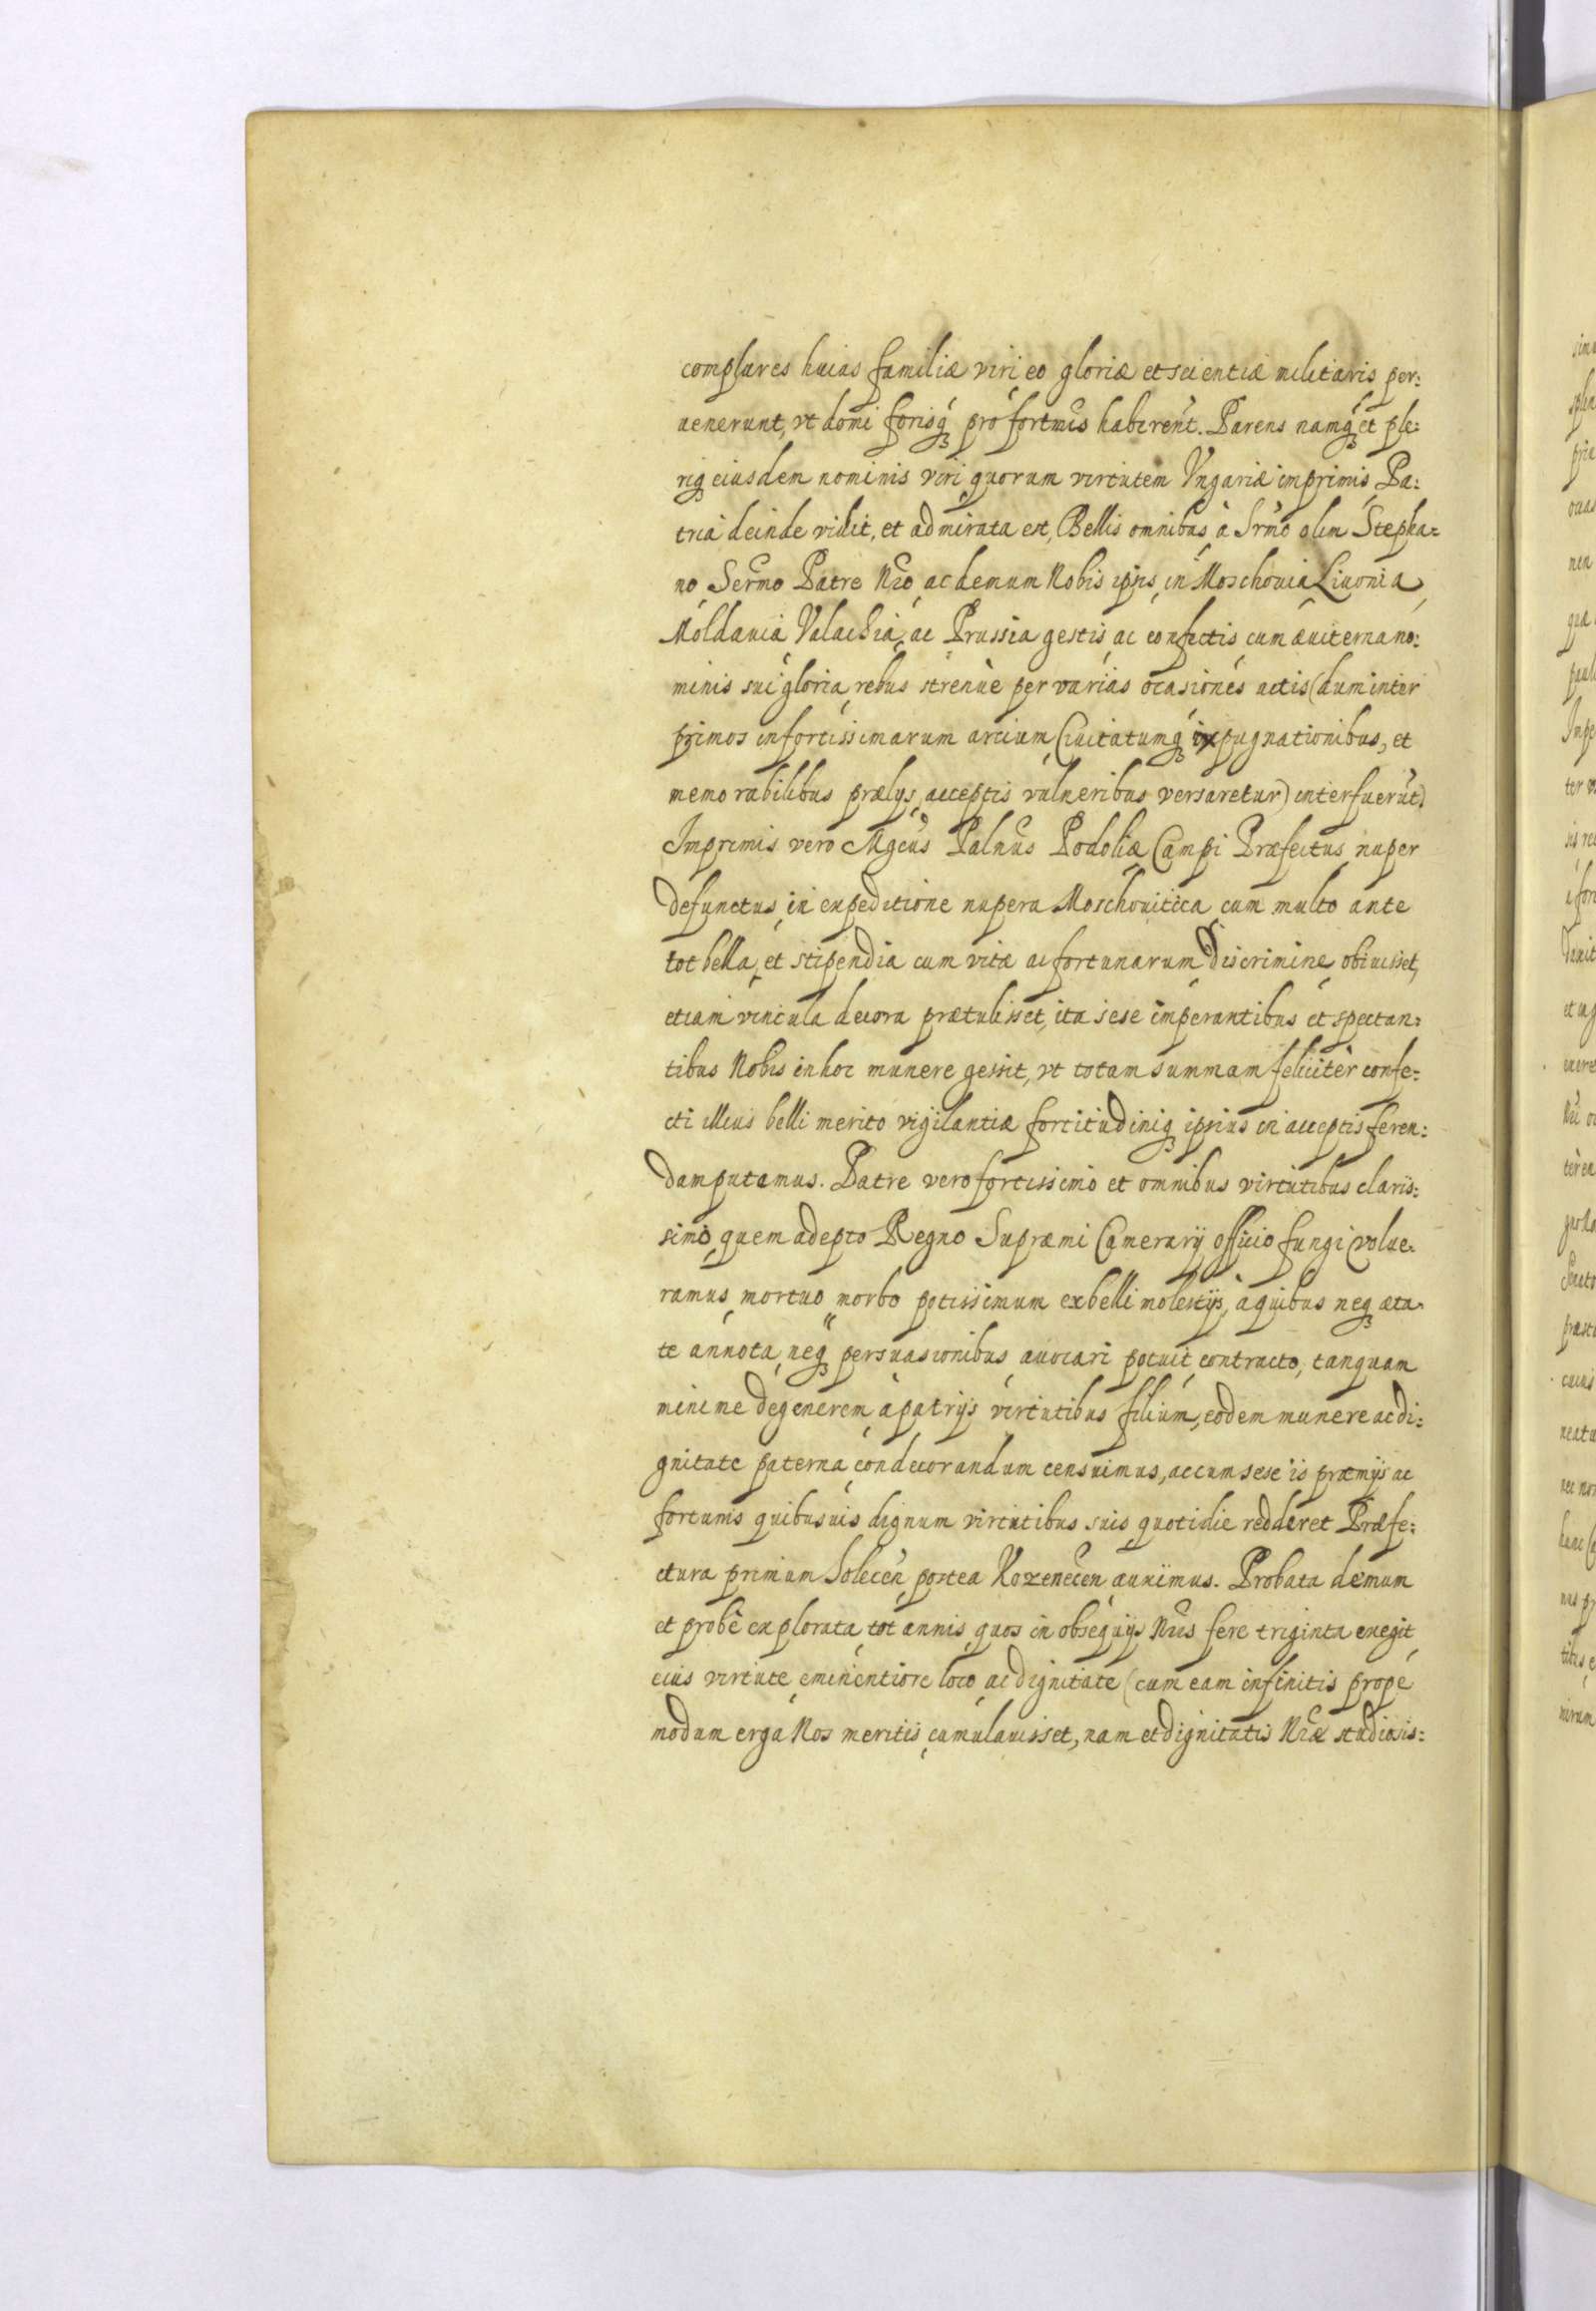 complures huius familiæ viri eo gloriæ et scientiæ militaris per:
uenerunt, vt domi forisq3 pro fortmis haberent. Parens namq3 et ple:
riq3 eiusdem nominis viri quorum virtutem Vngariæ imprimis, Pa:
tria deinde vidit, et admirata est, Bellis omnibus à Srmo olim Stepha:
no, Sermo Patre Nro, ac demum Nobis ipsis, in Moschouia Liuonia,
Moldauia, Valachia, ac Prussia gestis, ac confectis, cum æuiterna no:
minis sui gloria, rebus strenuè per varias ocasiones actis (dum inter
primos in fortissimarum arcium, Ciuitatumq3 expugnationibus, et
memorabilibus prælys, acceptis vulneribus versaretur) interfuerut.
Imprimis vero Mgcus Palnus Podoliæ Campi Præfectus nuper
defunctus, in expeditione nupera Moschouitica, cum multo ante
tot bella, et stipendia cum vitæ ac fortunarum discrimine obiuisset,
etiam vincula decora prætulisset, ita sese imperantibus et spectan:
tibus Nobis in hoc munere gessit, vt totam summam feliciter confe:
cti illius belli merito vigilantiæ fortitudiniq3 ipsius in acceptis feren:
dam putamus. Patre vero fortissimo et omnibus virtutibus claris:
simo, quem adepto Regno Supræmi Camerarÿ officio fungi volue:
ramus, mortuo, morbo potissimum ex belli molestÿs, à quibus neq3 æta:
te annota, neq3 persuasionibus, auocari potuit, contracto, tanquam
minime degenerem à patrÿs virtutibus filium, eodem munere ac di:
gnitate paterna, condecorandum censuimus, ac cum sese is præmÿs ac
fortunis quibusuis dignum virtutibus suis, quotidie redderet Præfe:
ctura primum Solecen, postea Kozenecen, auximus. Probata demum
et probè explorata, tot annis, quos in obsequÿs Nris fere triginta exegit,
eius virtute, eminentiore loco, ac dignitate (cum eam infinitis propè
modum erga Nos meritis, cumulauisset, nam et dignitatis Nræ studiosis: